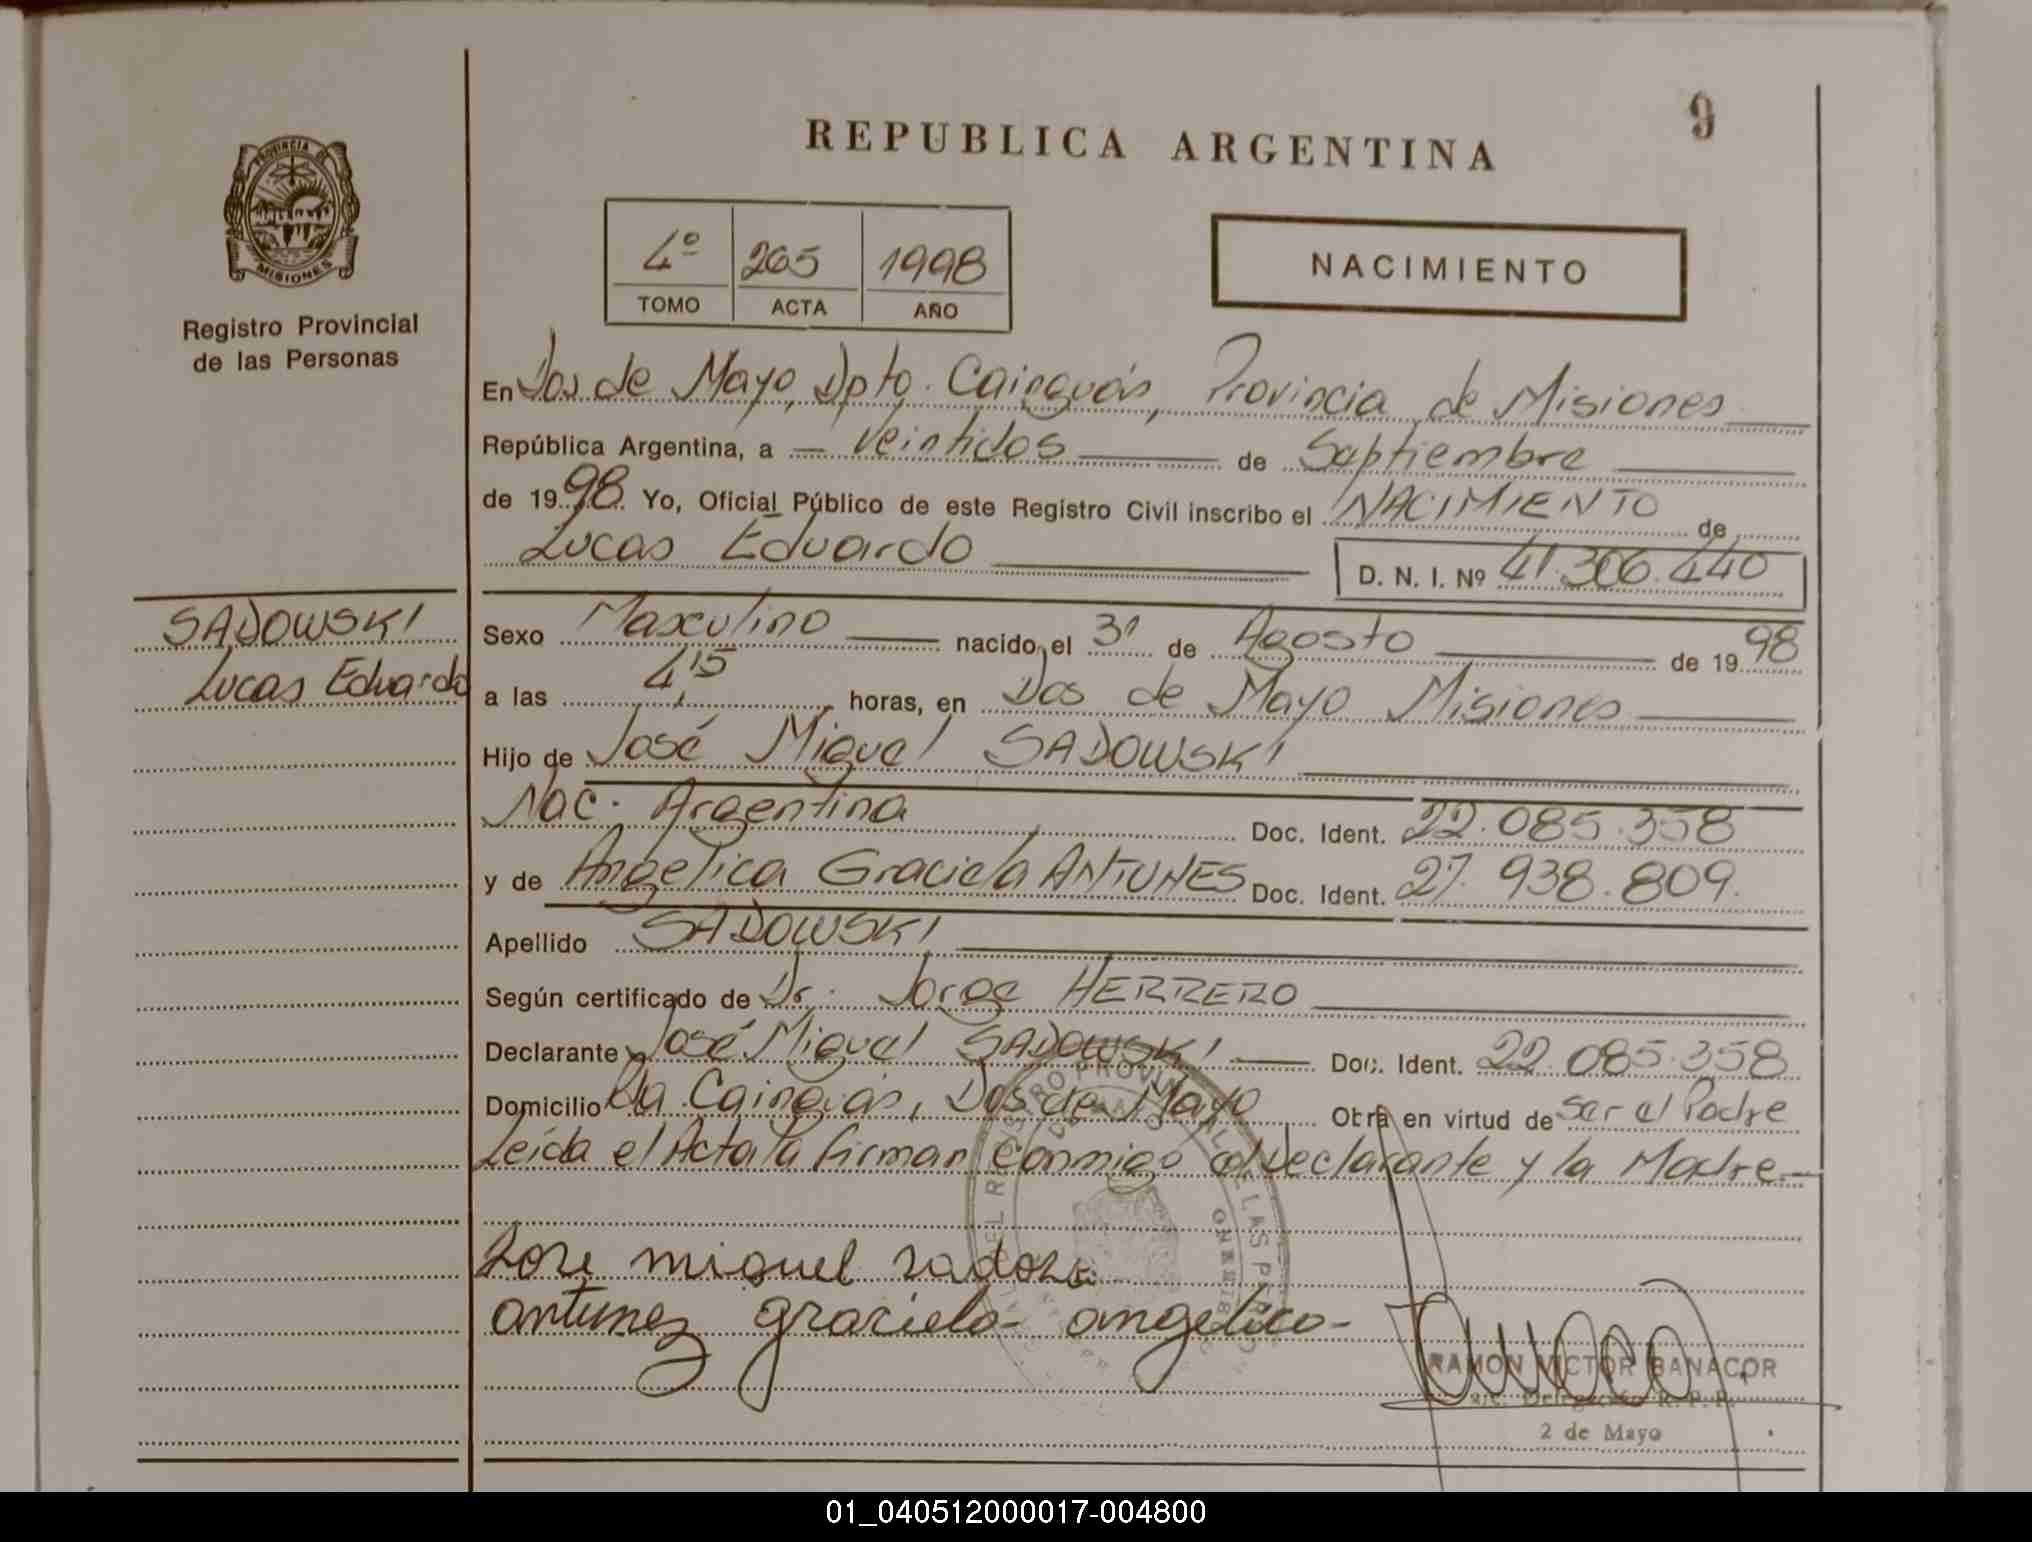 9
REPUBLICA ARGENTINA
PROVINCIA DE
MISIONES
Registro Provincial
de las Personas
4º 265 1998
TOMO ACTA AÑO
NACIMIENTO
En Dos de Mayo, Dpto. Cainguás, Provincia de Misiones
República Argentina, a veintidos de Septiembre
de 1998 Yo, Oficial Público de este Registro Civil inscribo el NACIMIENTO de
Lucas Eduardo D. N. I. Nº 41.306.440
SADOWSKI
Lucas Eduardo
Sexo Masculino nacido el 31 de Agosto de 1998
a las 4,15 horas, en Dos de Mayo Misiones
Hijo de José Miguel SADOWSKI
Nac. Argentina Doc. Ident. 22.085.358
y de Angelica Graciela ANTUNES Doc. Ident. 27.938.809.
Apellido SADOWSKI
Según certificado de Dr. Jorge HERRERO
Declarante José Miguel SADOWSKI Doc. Ident. 22.085.358
Domicilio Cainguás, Dos de Mayo Obra en virtud de ser el Padre
Leída el Acta la firman conmigo el Declarante y la Madre.-
Jose miguel
antunez graciela angelica
RAMON VICTOR BANACOR
a/c. Delegación R. P. P.
2 de Mayo
01_040512000017-004800